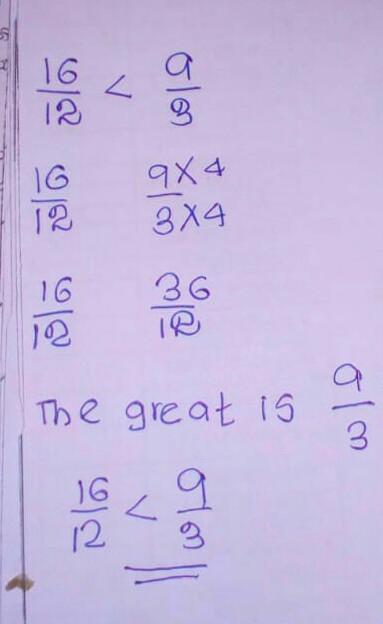 16/12 < 9/3
16/12 9×4/3×4
16/12 36/12
The great is 9/3
16/12 < 9/3